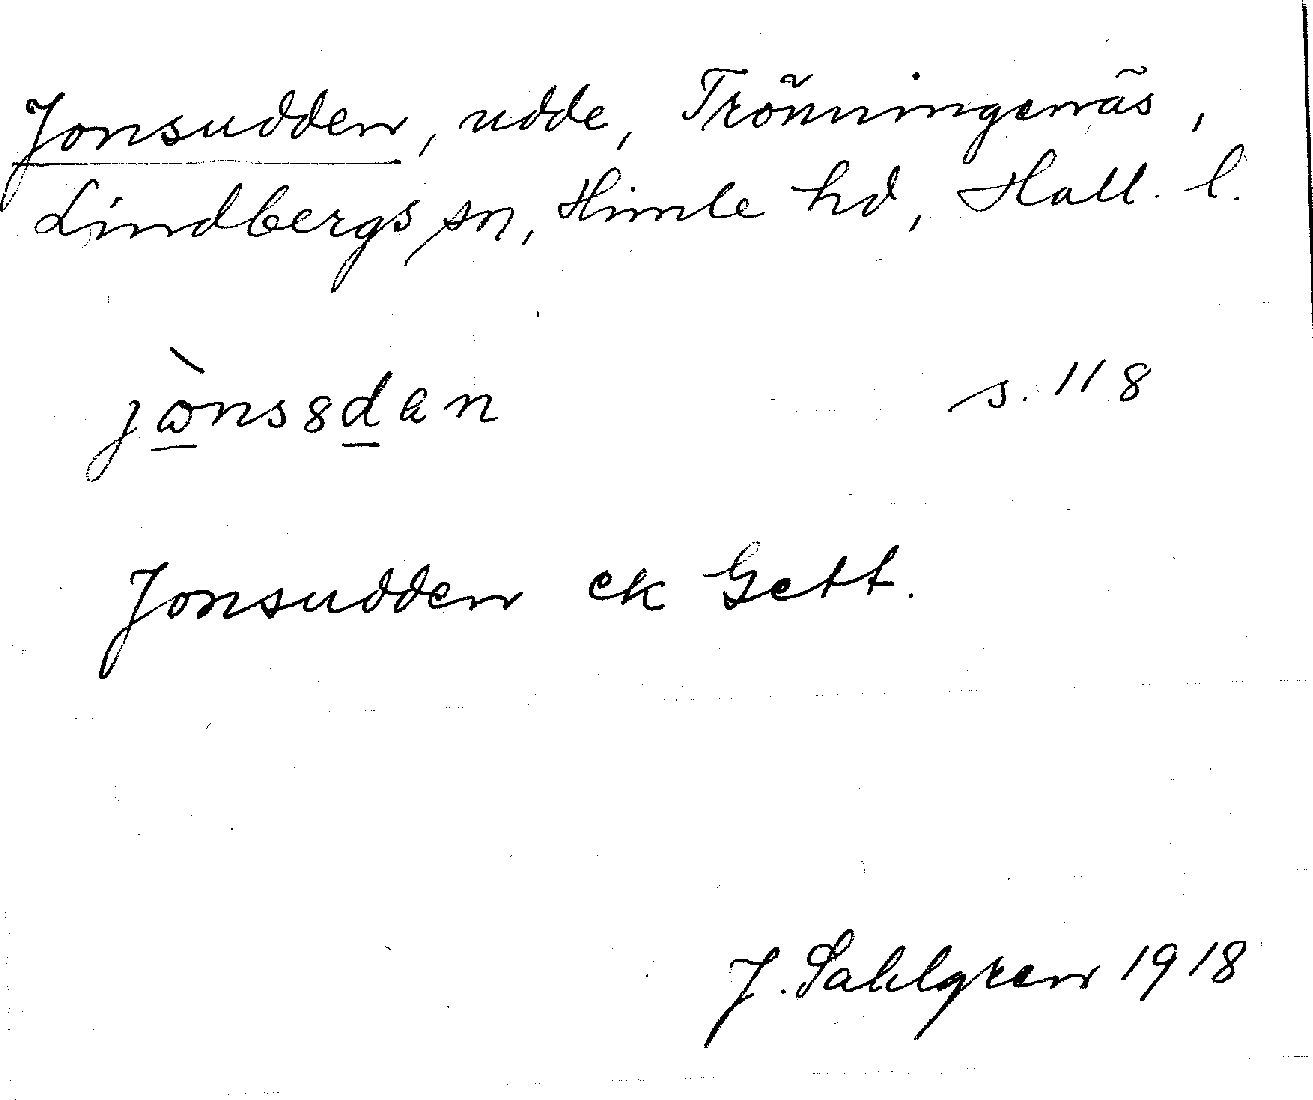 Jonsudden, udde, Trönningenäs,
Lindbergs sn, Himle hd, Hall. l.
jὼns8dan s. 118
Jonsudden ek Gett.
J. Sahlgren 1918